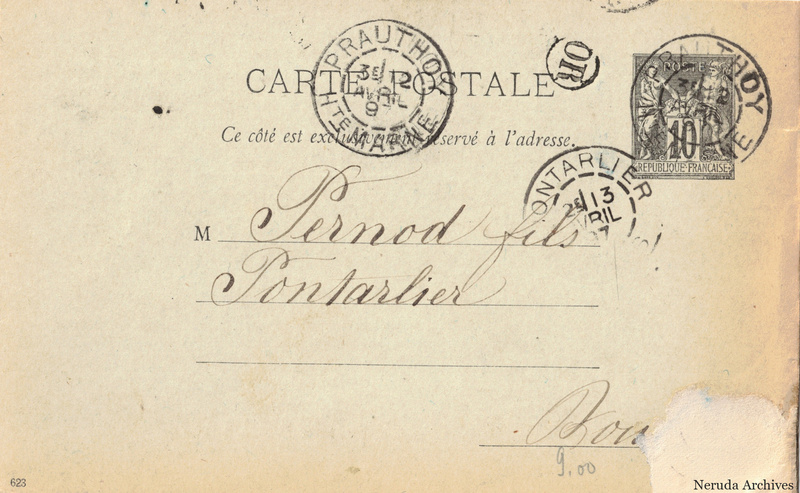 CARTE POSTALE
Ce côté est exclusivement réservé à l'adresse.
PRAUTHOY
3E / 12
AVRIL
9
HTE MARNE
OR
PRAUTHOY
POSTE
10
REPUBLIQUE FRANCAISE
PONTARLIER
13
VRIL
97
M Pernod fils
Pontarlier
9.00
623
Neruda Archives